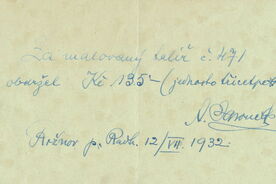 Za malovaný talíř č. 471
obdržel Kč 135- (jednosto třicetpět
Rožnov p. Radh. 12/VII. 1932.